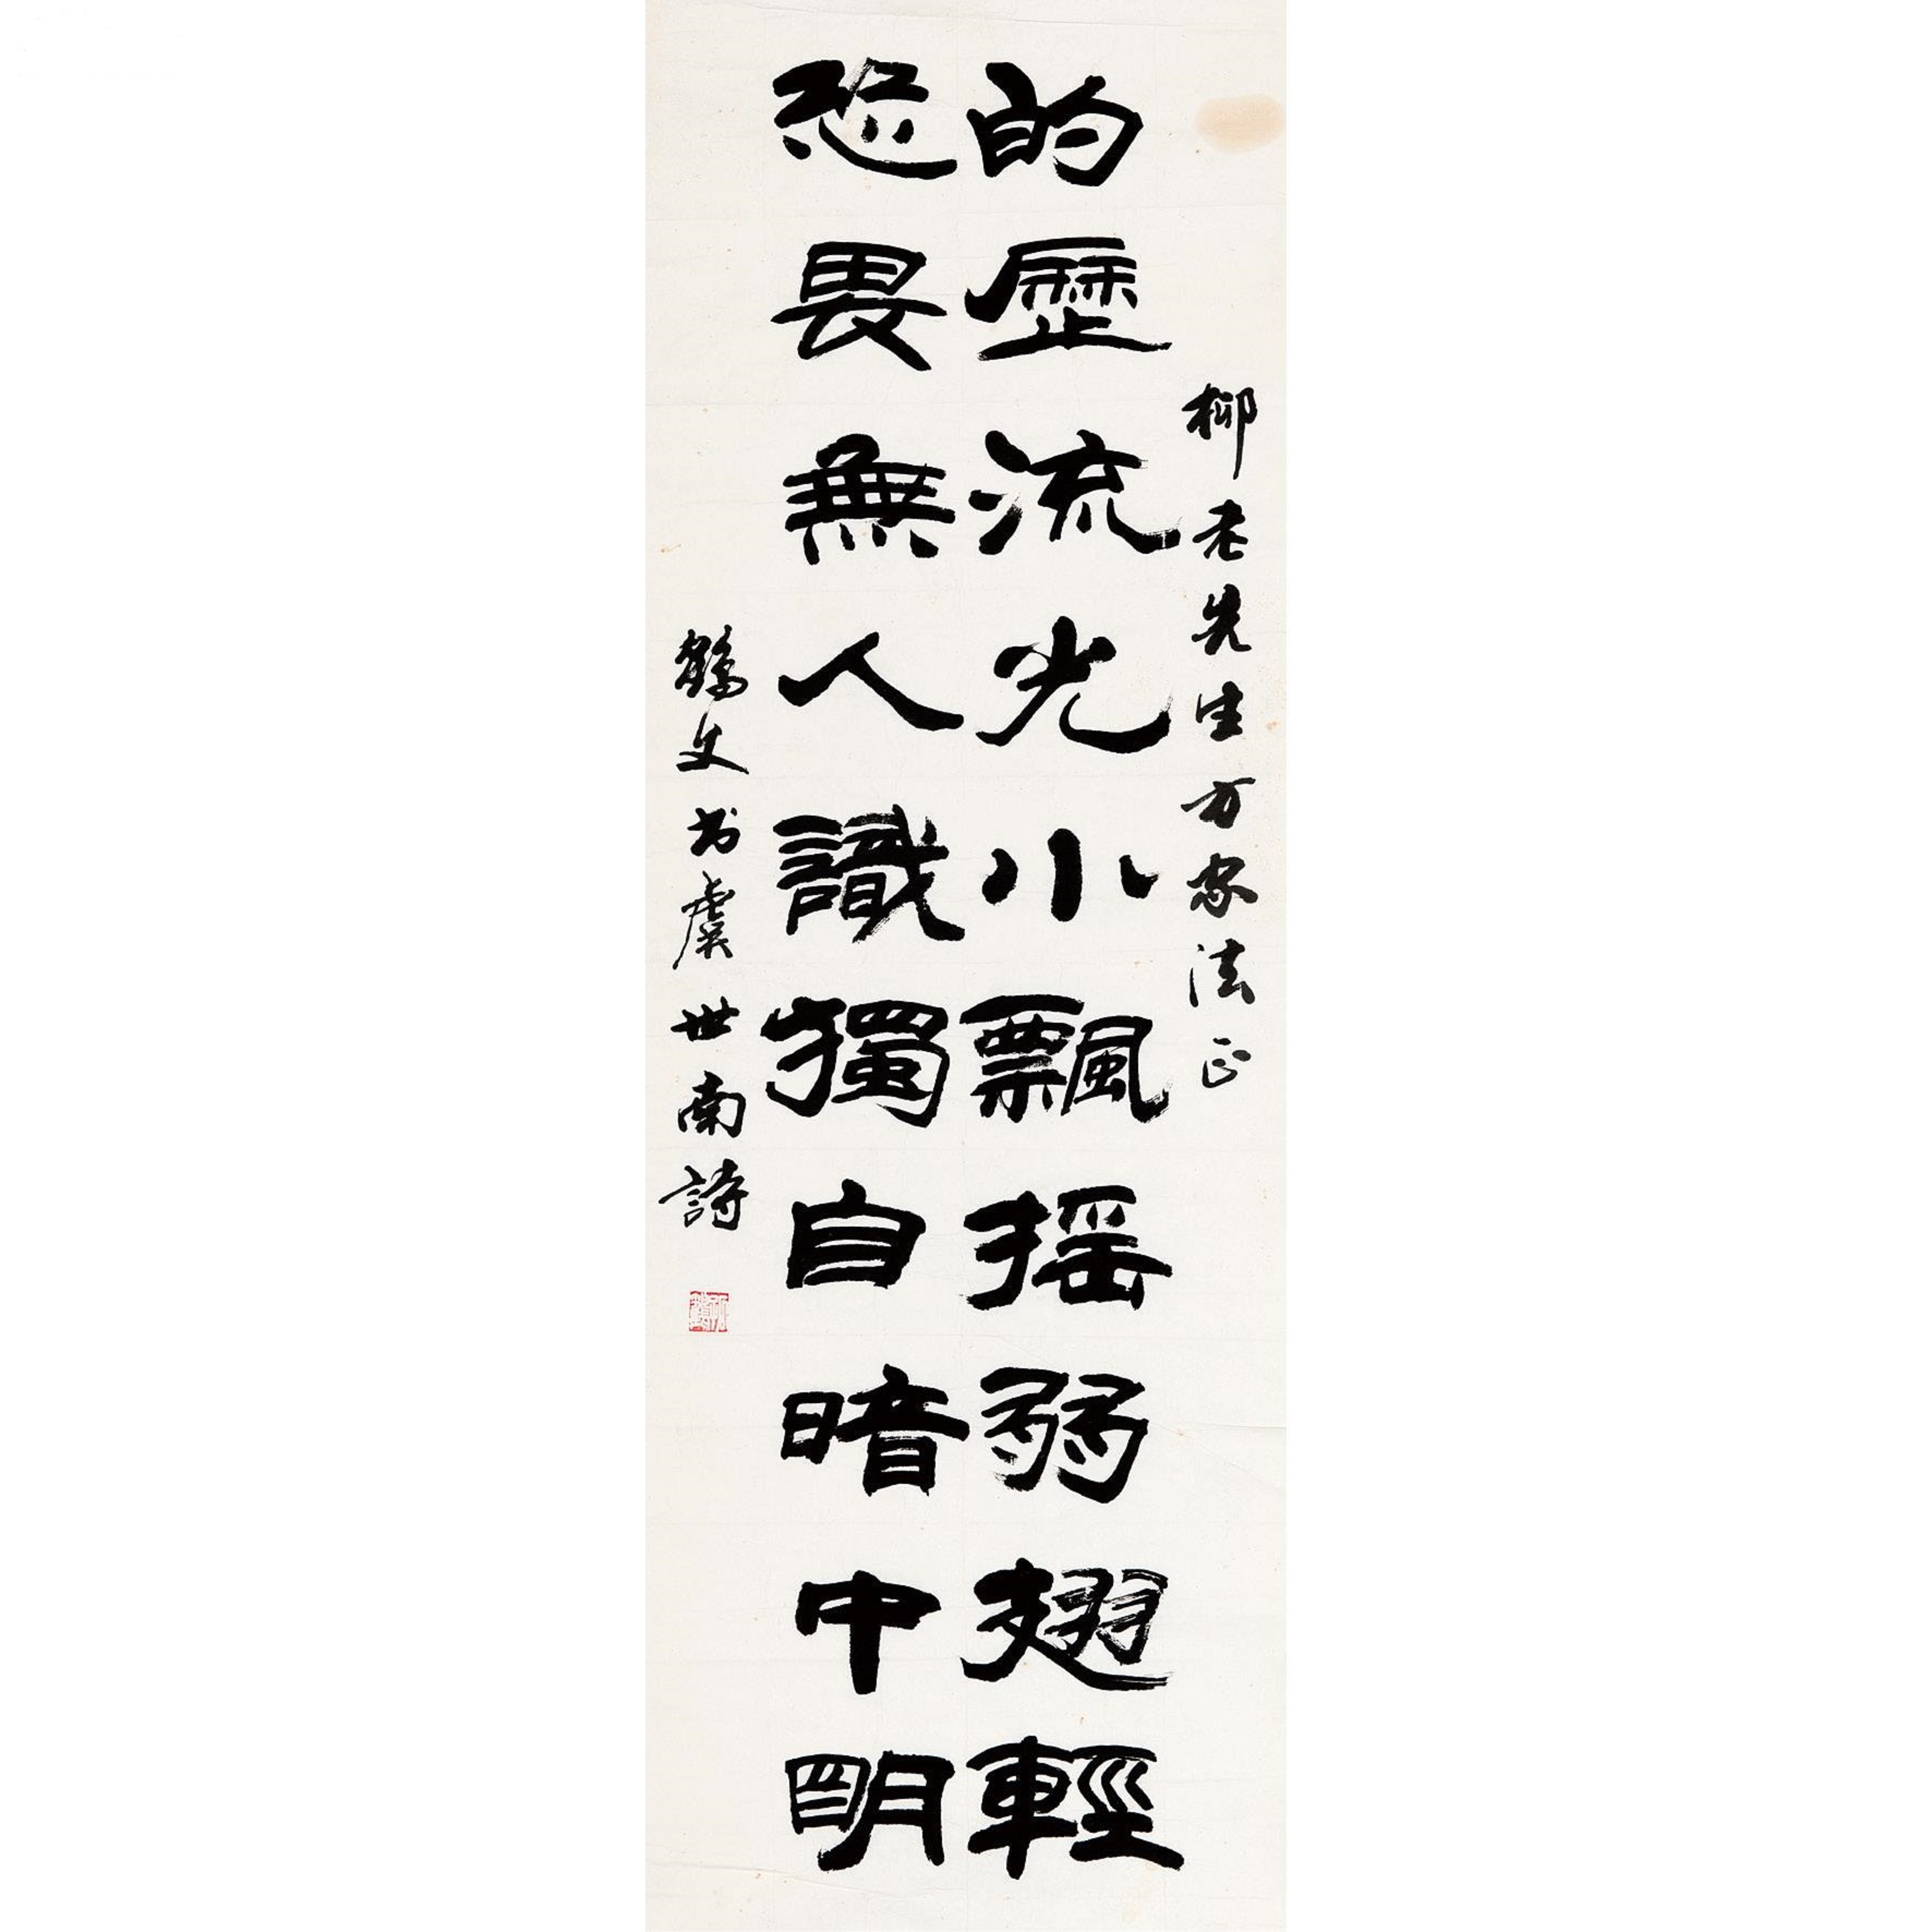 柳老先生方家法正
的歷流光小飄摇弱翅輕
恐畏無人識獨自暗中明
書虞世南詩